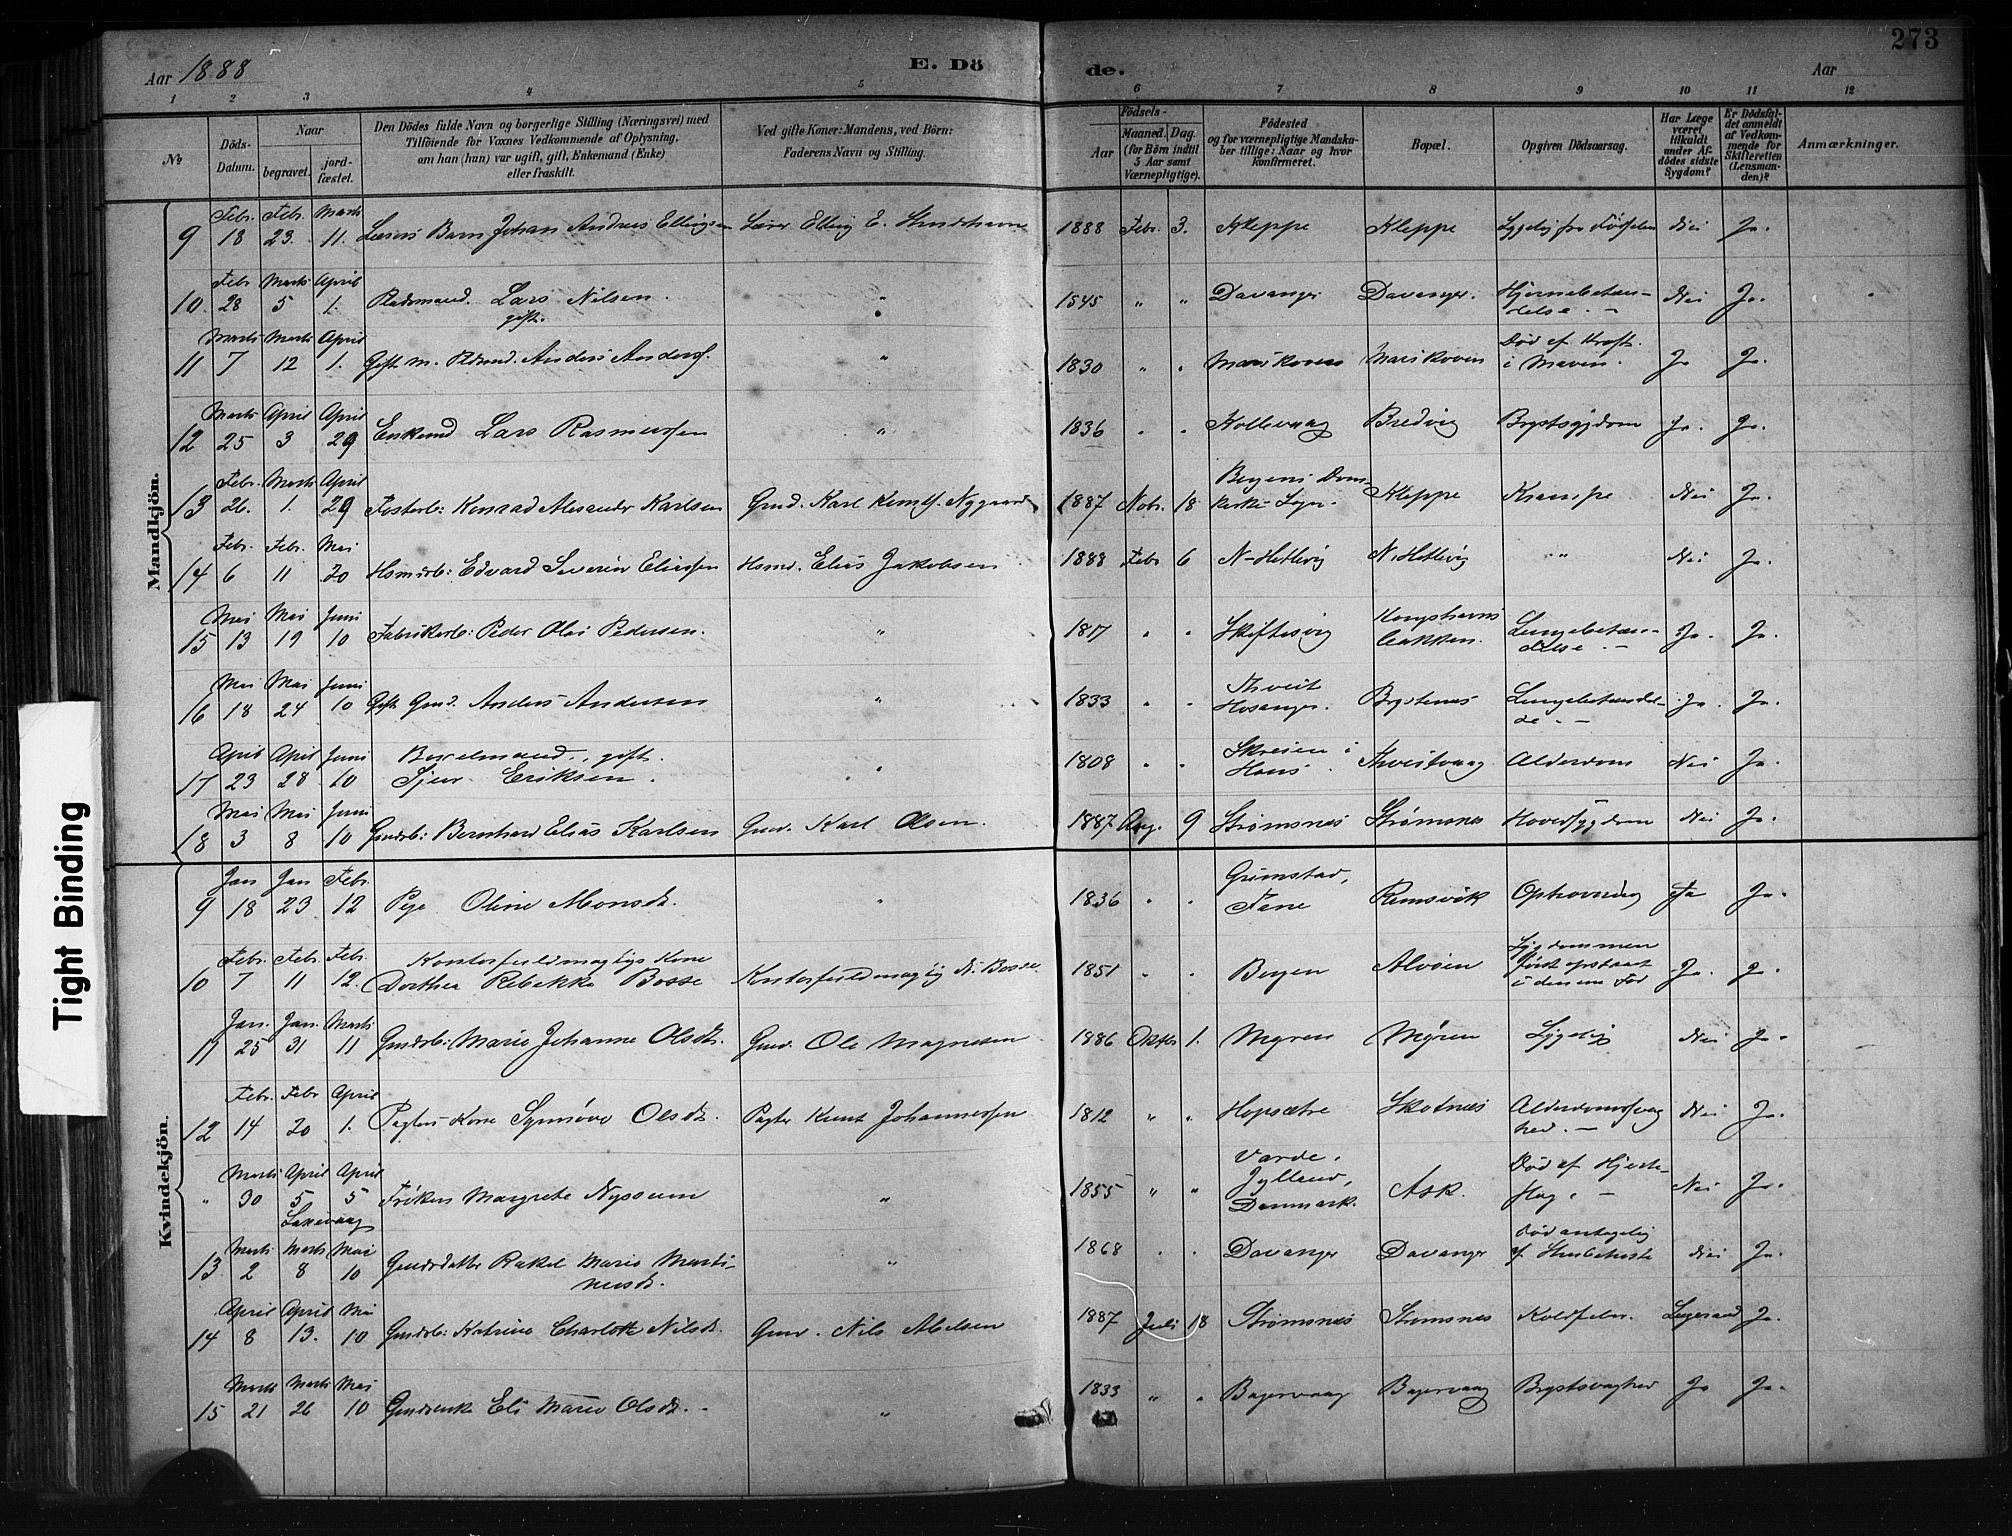 Aar 1888
E. Dö
de.
Aar
273
1 2 3 4 5 6 7 8 9 10 11 12
№
Döds-Datum.
Naar
begravet.
jord-fæstet.
Den Dödes fulde Navn og borgerlige Stilling (Næringsvei) med
Tilföiende for Voxnes Vedkommende af Oplysning,
om han (hun) var ugift, gift, Enkemand (Enke)
eller fraskilt.
Ved gifte Koner: Mandens, ved Börn:
Faderens Navn og Stilling.
Födsels-
Aar
Maaned. Dag.
(for Börn indtil
5 Aar samt
Værnepligtige).
Födested
og for værnepligtige Mandska-
ber tillige: Naar og hvor
konfirmeret.
Bopæl.
Opgiven Dödsaarsag.
Har Læge
været
tilkaldt
under Af-
dödes sidste
Sygdom?
Er Dödsfal-
det anmeldt
af Vedkom-
mende for
Skifteretten
(Lensman-
den)?
Anmærkninger.
Mandkjön.
9 Febr. 18 Febr. 23. Marts 11. Lærers Barn Johan Andreas Ellingsen Lærer Elling E. 1888 Febr. 3. Kleppe Kleppe Sygelig fra Fødselen Nei Ja.
10. Febr. 28 Marts 5 April 1. Pladsmand. Lars Nilsen. gift. " 1845 " " Davanger Davanger. Hjernebetæn-delse. - Nei Ja.
11 Marts 7 Marts 12 April 1. Gift m. Anders Anders. " 1830 " " Marikoven Marikoven Død af Kræft i Maven. Ja Ja.
12 Marts 25 April 3 April 29 Enkemd Lars Rasmussen " 1836 " " Kollevaag Bredvig Brystsygdom Ja. Ja.
13 Febr. 26. Marts 1. April 29 Fosterb: Konrad Alexander Karlsen Gmd. Karl Nygaard 1887 Nobr. 18 Bergens Dom-kirke-Sogn. Kleppe Krampe Nei Ja.
14 Febr. 6 Febr. 11 Mai 20 Hsmdsb: Edvard Severin Eliassen Hsmd. Elias Jakobsen 1888 Febr 6 N-Hetlevig N-Hetlevig " " Nei Ja.
15 Mai 13 Mai 19 Juni 10 Fabrikarb: Peder Olai Pedersen. " 1817 " " Skiftesvig Kongshavns bakken. Lungebetæn-delse. - Ja. Ja.
16 Mai 18 Mai 24 Juni 10 Gift Gmd. Anders Andersen " 1833 " " Thveit Hosanger. Brystenes Ja. Ja.
17 April 23 April 28 Juni 10 gift. Sjur Eriksen. " 1808 " " i Haus. Thveitvaag Alderdom Nei Ja.
18 Mai 3 Mai 8 Juni 10 Gmdsb: Bernhard Elias Karlsen Gmd. Karl Olsen. 1887 Aug. 9 Strømsnes Strømsnes Hovedsygdom Nei Ja.
Kvindekjön.
9 Jan 18 Jan 23 Febr. 12 Pige Oline Monsdt. " 1836 " " Grimstad, Fane Remsvik Ophovning Ja Ja.
10 Febr. 7 Febr. 11 Febr. 12. Kontorfuldmægtigs Kone Dorthea Rebekka Bosse Kontorfuldmægtig N. Bosse 1851 " " Bergen Alvøen Sygdommen først opstaaet i denne Fod Ja. Ja.
11 Jan. 25 Jan. 31 Marts 11 Gmdsb: Marie Johanne Olsdt. Gmd. Ole Magnesen 1886 Oktbr 1. Myren Myren Sygelig Nei Ja.
12 Febr. 14 Febr 20 April 1. Pagters-Kone Synnøve Olsdt. Pagter Knut Johannessen 1812 " " Hopsætre Skotnes Alderdomssvag hed. - Nei Ja.
" Marts 30 April 5 Laxevaag April 5 Frøken Margrete Nyssum " 1855 " " Varde, Jylland, Danmark. Ask. Død af Hjerte-slag. - Nei Ja.
13 Marts 2 Marts 8 Mai 10 Gmdsdatter Rakel Marie Marti-nusdt. " 1868 " " Davanger Davanger Død antagelig af Nei Ja.
14 April 8 April 13. Mai 10 Gmdsb: Katrine Charlotte Nilsdt. Gmd. Nils Abelsen 1887 Juli 18 Strømsnes Strømsnes Koldfeber. Lægeraad Ja.
15 Marts 21 Marts 26 Mai 10 Gmdsenke Eli Marie Olsdt. - " 1833 " " Bagervaag Bagervaag Brystsvaghed Ja Ja.
Tight Binding